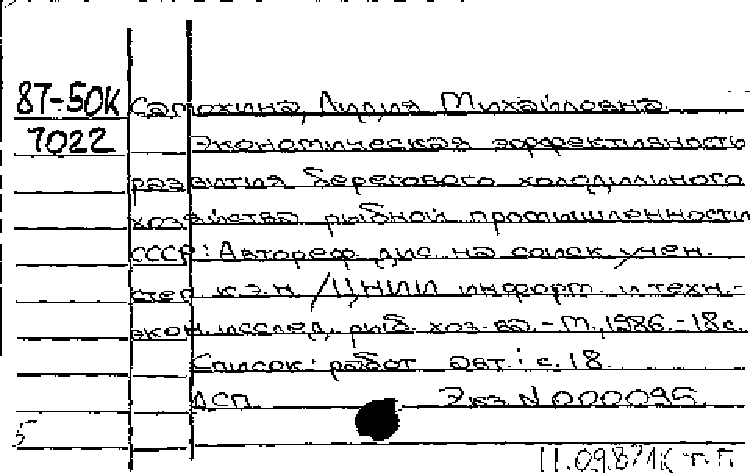 87-50К Самохина, Лидия Михайловна
7022 Экономическая эффективность
развития берегового холодильного
хозяйства рыбной промышленности
СССР: Автореф. дис. на соиск. учен.
степ. к.э.н. / ЦНИИ информ. и техн.-
экон. исслед. рыб. хоз-ва. - М., 1986. - 18 с.
Список: работ авт.: с. 18
ДСП Экз. N 000095
5
11.09.87